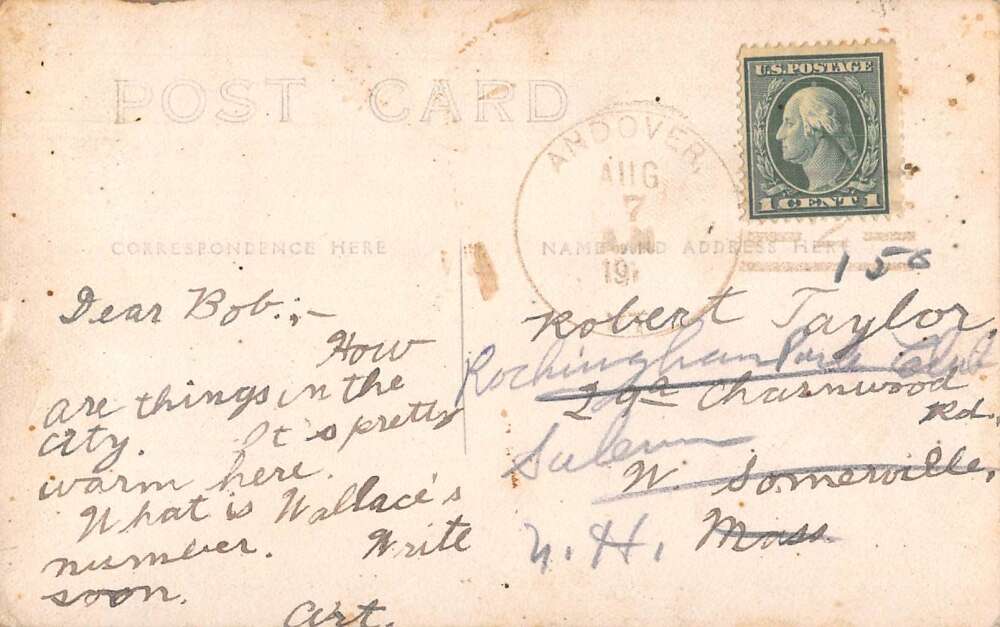 POST CARD
U.S. POSTAGE
1 CENT 1
ANDOVER,
AUG
7
19
CORRESPONDENCE HERE
NAME AND ADDRESS HERE
Dear Bob:,-
How
are things in the
city. It's pretty
warm here.
What is Wallace's
number. Write
soon.
Art.
Robert Taylor,
Rockingham Park Club
Charnwood
Rd.
Salem
W. Somerville,
N.H.
Mass.